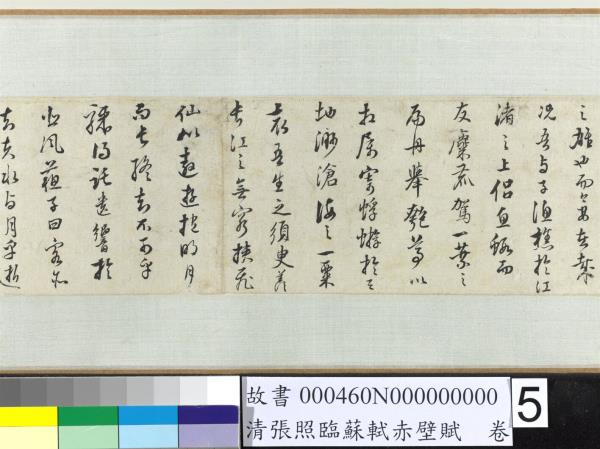 之雄也而今安在哉
況吾與子漁樵於江
渚之上侶魚鰕而
友麋鹿駕一葉之
扁舟舉匏尊以
相屬寄蜉蝣於天
地渺滄海之一粟
哀吾生之須臾羨
長江之無窮挾飛
仙以遨遊抱明月
而長終知不可乎
驟得託遺響於
悲風蘇子曰客亦
知夫水與月乎逝
故書 000460N000000000
清張照臨蘇軾赤壁賦 卷
5